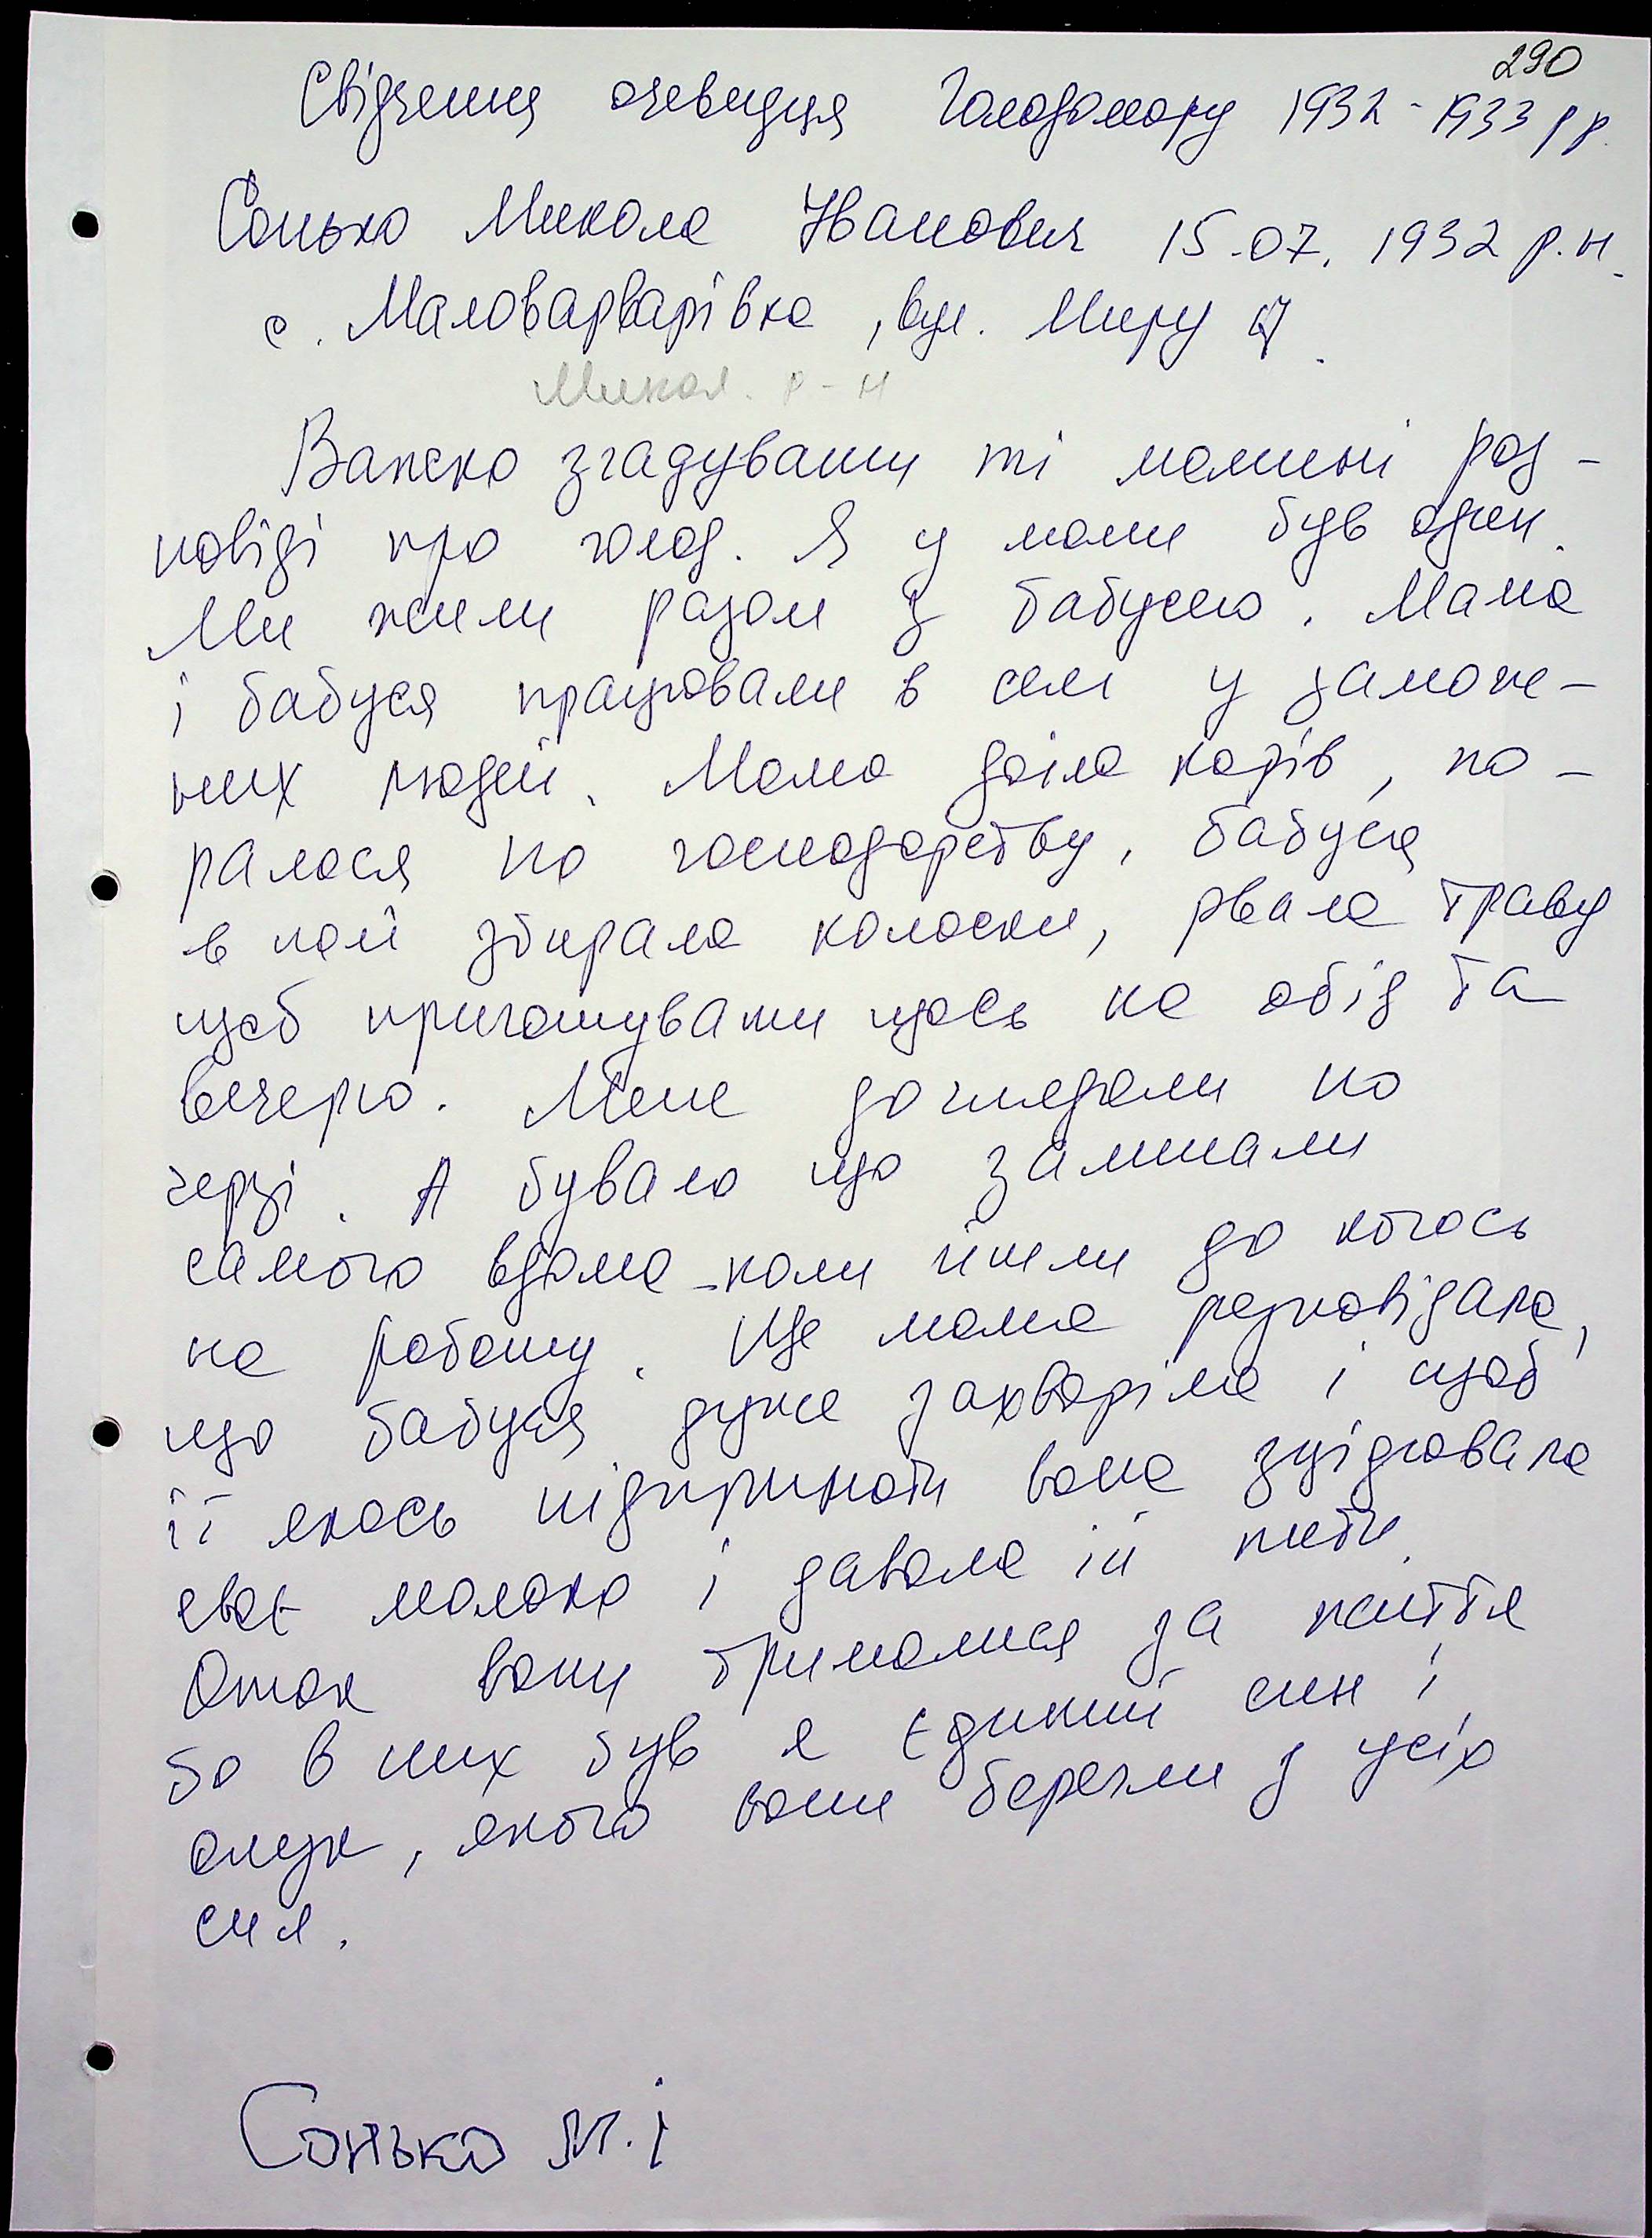 290
Свідчення очевидця Голодомору 1932-1933 рр.
Сонько Микола Іванович 15.07.1932 р.н.
с. Маловарварівка, вул. Миру
Микол. р-н
Важко згадувати ті мамині роз-
повіді про голод. Я у мами був один.
Ми жили разом з бабусею. Мама
і бабуся працювали в селі у замож-
них людей. Мама доїла корів, по-
ралася по господарству, бабуся
в полі збирала колоски, рвала траву
щоб приготувати щось на обід та
вечерю. Мене доглядали по
черзі. А бувало що залишали
самого вдома - коли йшли до когось
на роботу. Ще мама розповідала,
що бабуся дуже захворіла і щоб
її якось підтримати вона зціджувала
своє молоко і давала їй пити.
Отак вони трималися за життя
бо в них був я єдиний син і
онук, якого вони берегли з усіх
сил.
Сонько М.І